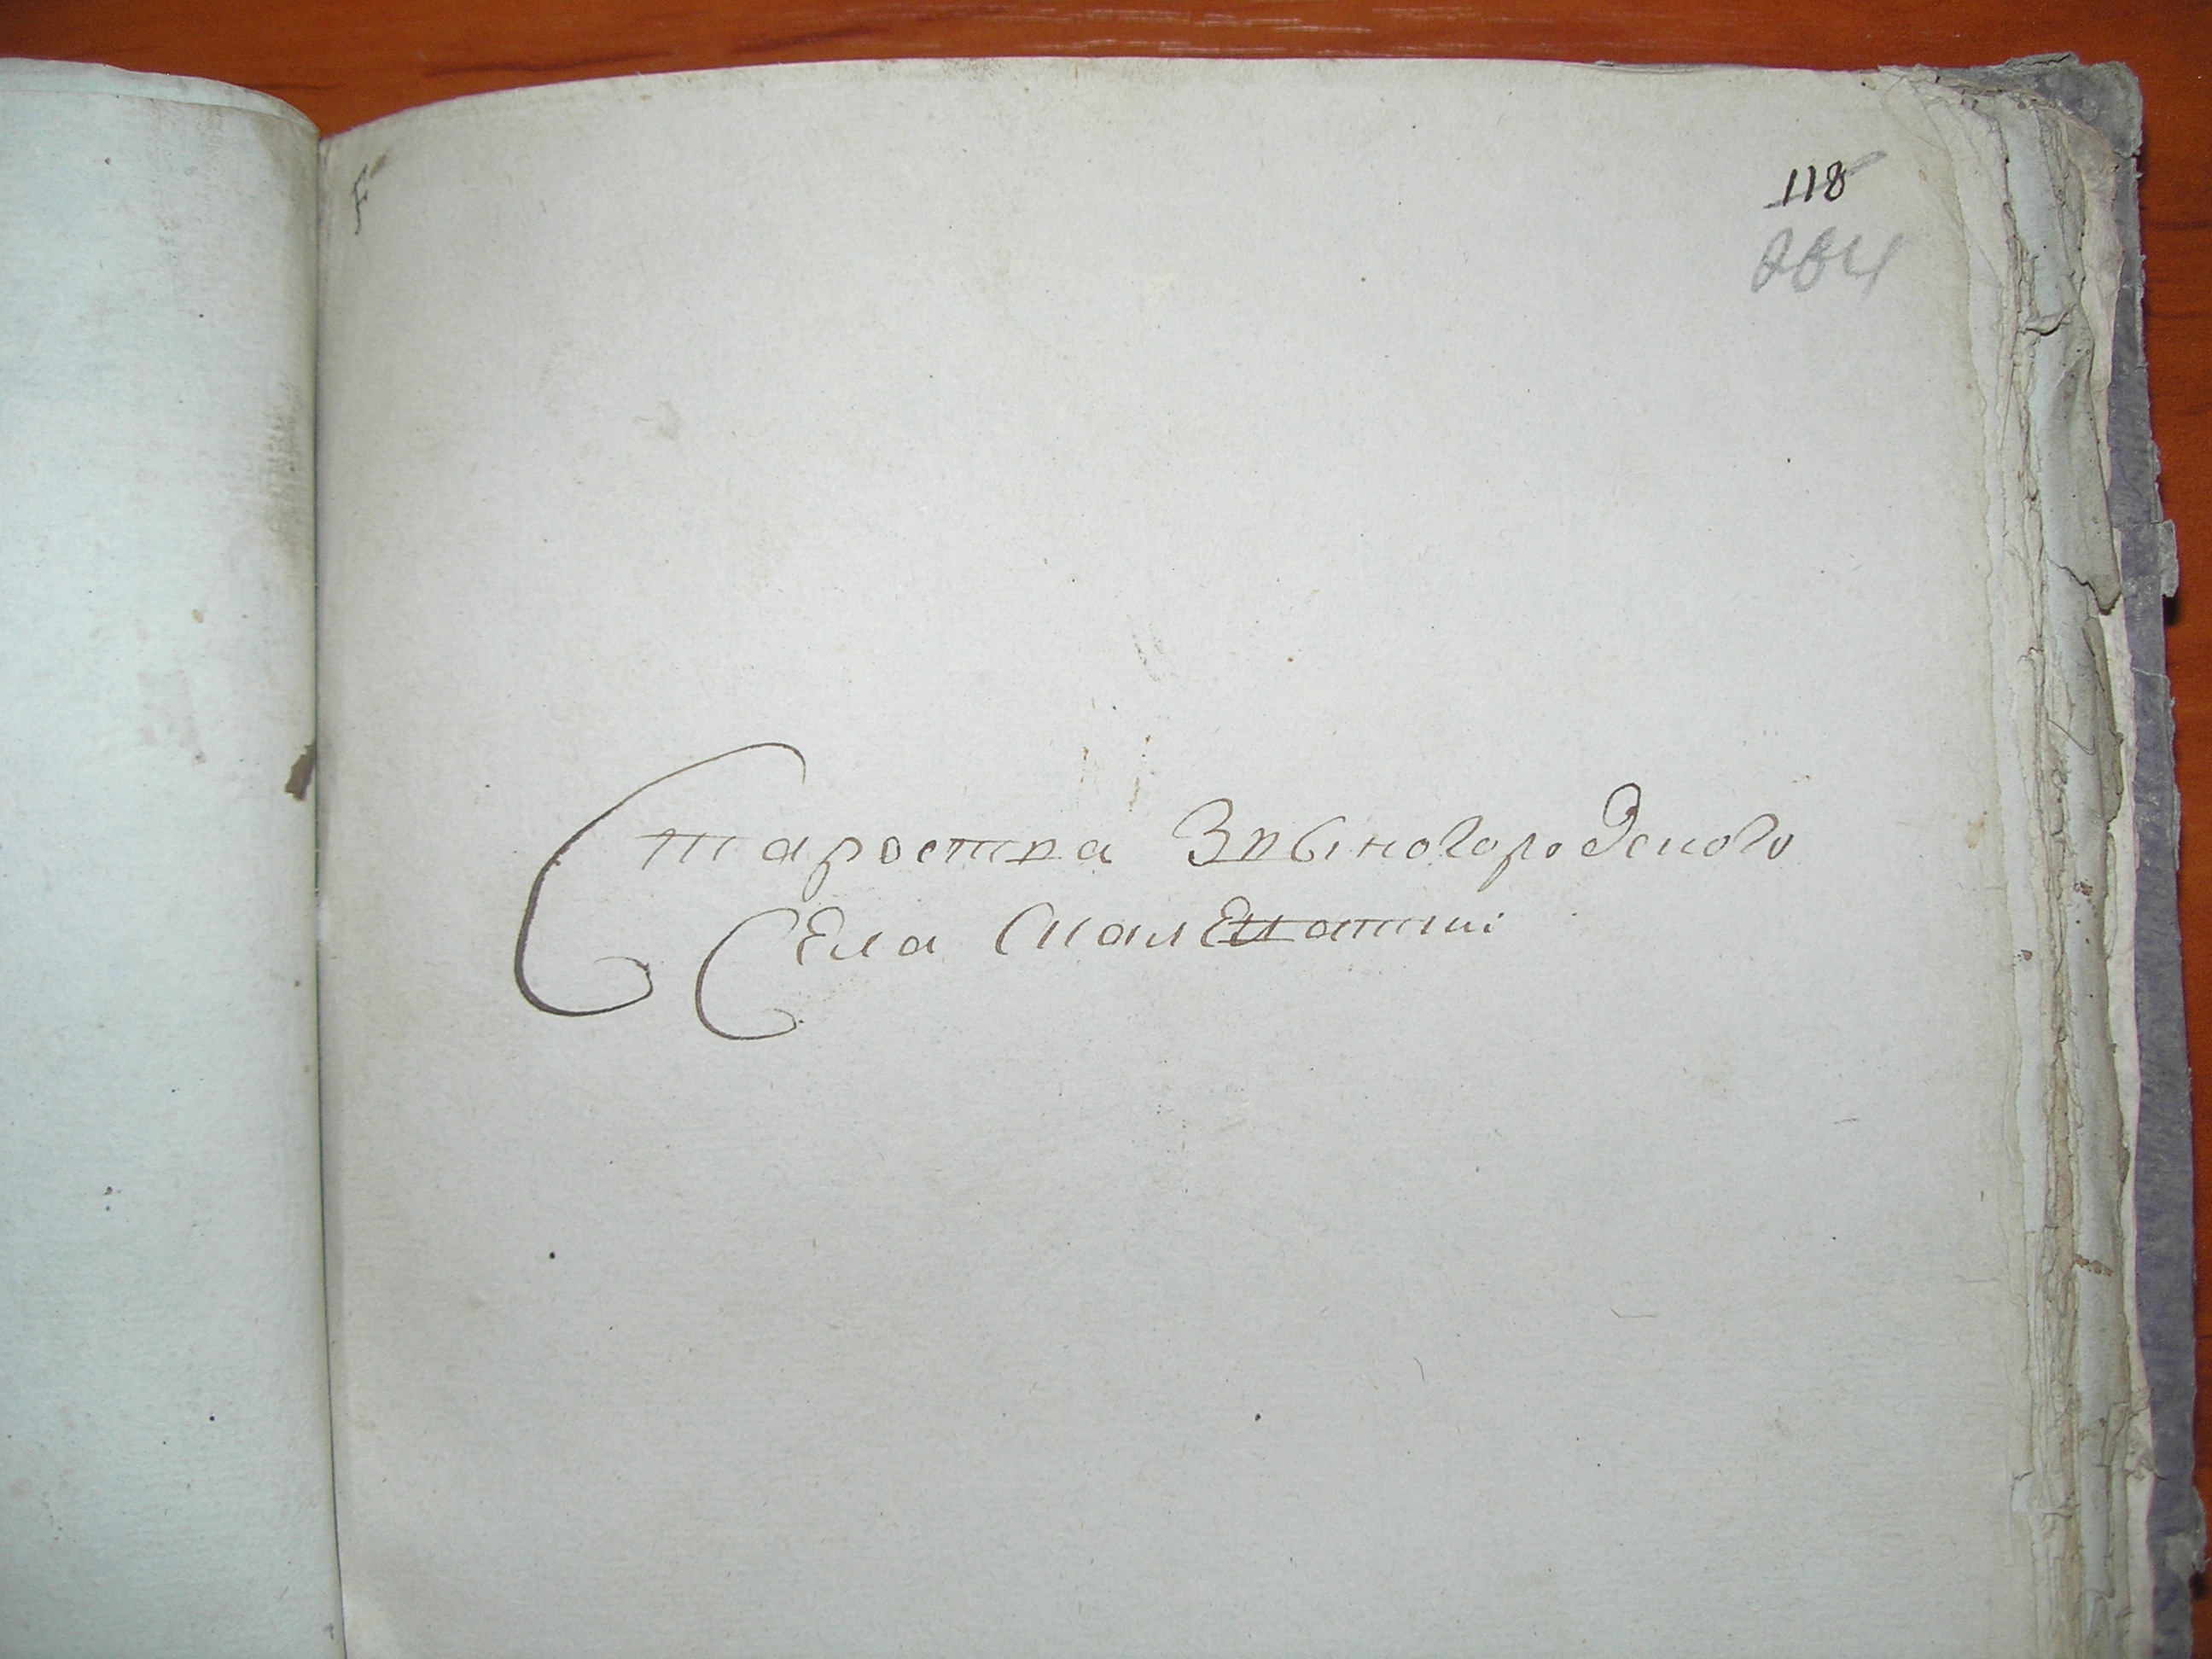 118
264
Староства Звиногородского
Села Скалеватки